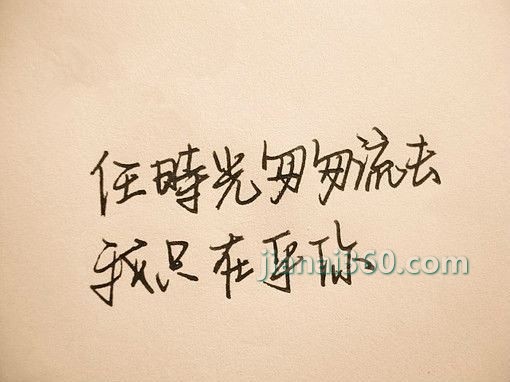 任時光匆匆流去
我只在乎你
jianai360.com